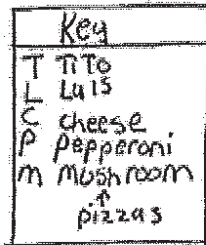 Key
T TiTo
L Luis
C cheese
P Pepperoni
m mushroom
pizzas